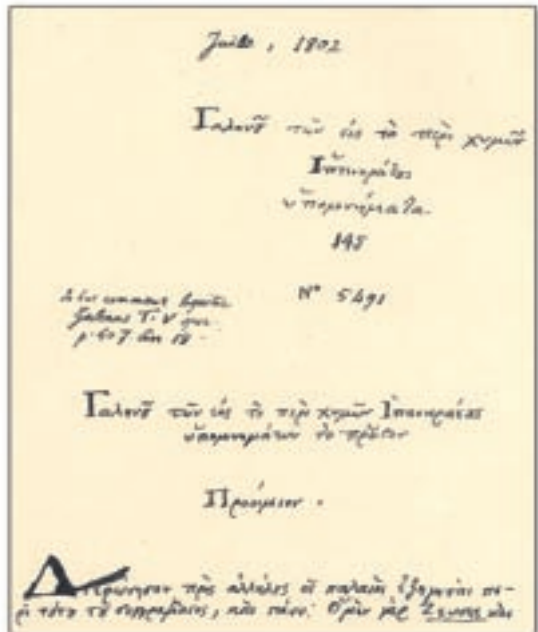 Juillet, 1802
Γαληνοῦ τῶν εἰς τὸ περὶ χυμῶν
Ἱπποκράτους
ὑπομνήματα.
148
Nº 5491
Galenus T. V
p. 507
Γαληνοῦ τῶν εἰς τὸ περὶ χυμῶν Ἱπποκράτους
ὑπομνημάτων τὸ πρῶτον
Προοίμιον.
πρὸς ἀλλήλους οἱ παλαιοὶ ἐξηγηταὶ πε-
ρὶ τούτου τοῦ συγγράμματος, καὶ πάνυ. Οἱ μὲν γὰρ